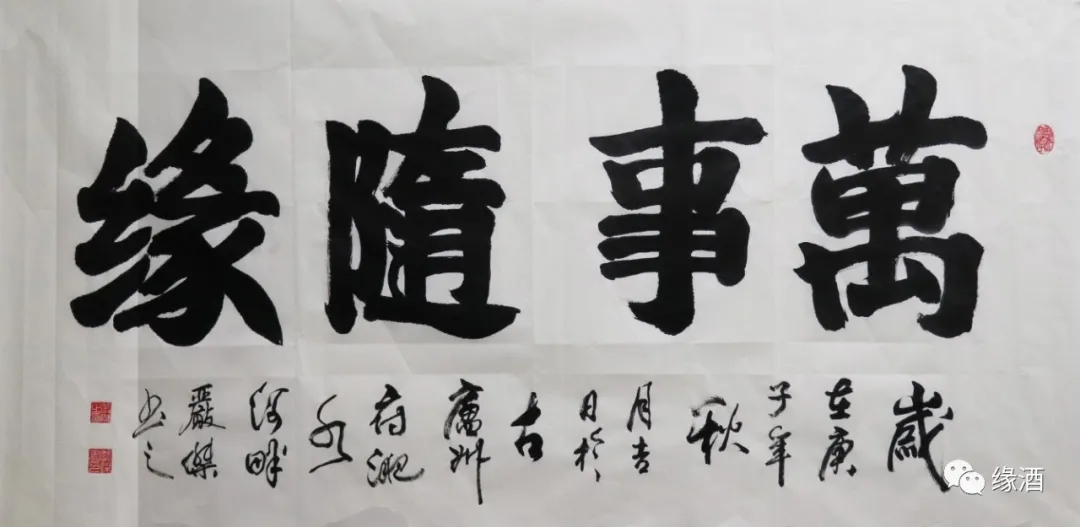 萬事隨缘
歲
在庚
子年
秋
月吉
日於
古
廬州
府淝
水
河畔
嚴傑
书之
缘酒